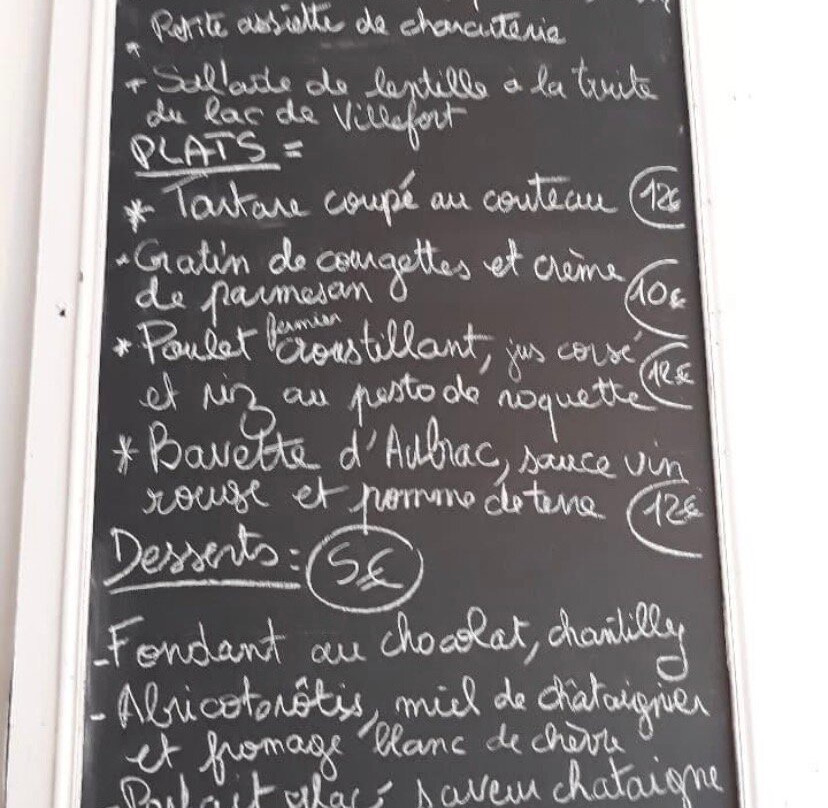 * Petite assiette de charcuterie
- Salade de lentille a la truite
du lac de Villefort
PLATS =
* Tartare coupé au couteau 12€
- Gratin de courgettes et crème
de parmesan 10€
* Poulet fermier croustillant, jus corsé
et riz au pesto de roquette 12€
* Bavette d'Aubrac, sauce vin
rouge et pomme de terre 12€
Desserts : 5€
- Fondant au chocolat, chantilly
- Abricots rôtis, miel de châtaignier
et fromage blanc de chèvre
- Parfait glacé saveur chataigne